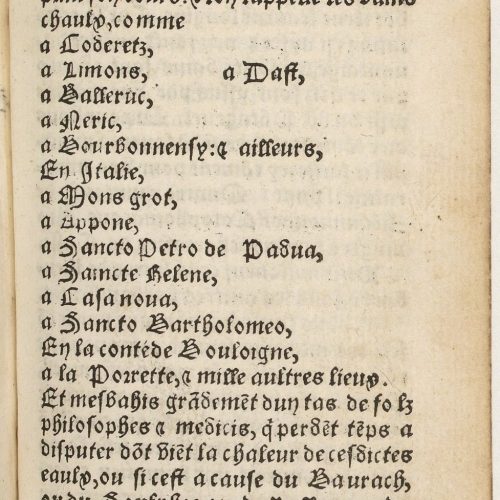 chaulx, comme
a Coderetz,
a Limons, a Dast,
a Balleruc,
a Neric,
a Bourbonnensy: ⁊ ailleurs,
En Italie,
a Mons grot,
a Appone,
a Sancto Petro de Padua,
a Saincte Helene,
a Casa noua,
a Sancto Bartholomeo,
En la contéde Bouloigne,
a la Porrette, ⁊ mille aultres lieux.
Et mesbahis grãdemẽt dun tas de folz
philosophes ⁊ medicis, q̃ perdẽt tẽps a
disputer dõt viẽt la chaleur de cesdictes
eaulx, ou si cest a cause du Baurach,